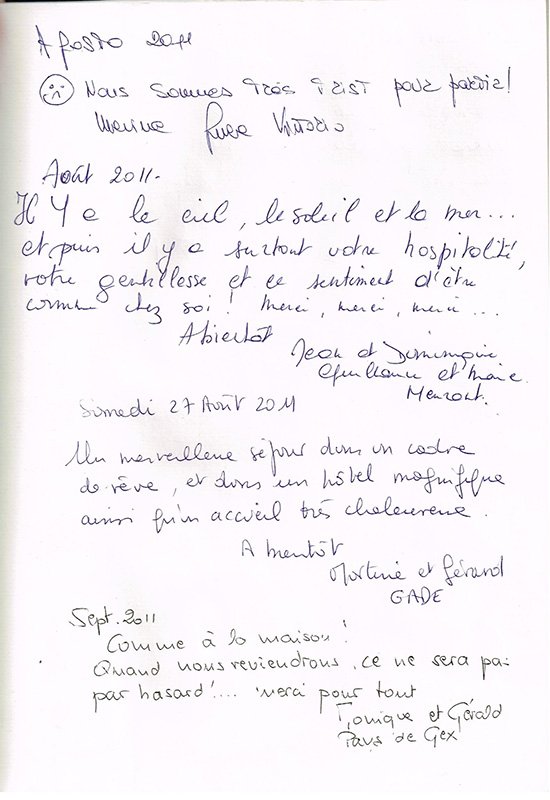 Agosto 2011
Nous sommes très trist pour partir!
Marina Luca Vittorio
Août 2011.
Il y a le ciel, le soleil et la mer...
et puis il y a surtout votre hospitalité,
votre gentillesse et ce sentiment d'être
comme chez soi! Merci, merci, merci...
A bientôt
Jean et Dominique
Guillaume et Marie
Samedi 27 Août 2011
Un merveilleux séjour dans un cadre
de rêve, et dans un hôtel magnifique
ainsi qu'un accueil très chaleureux.
A bientôt
Martine et Gérard
GADE
Sept. 2011
Comme à la maison!
Quand nous reviendrons, ce ne sera pas
par hasard!... merci pour tout
et Gérald
Pays de Gex